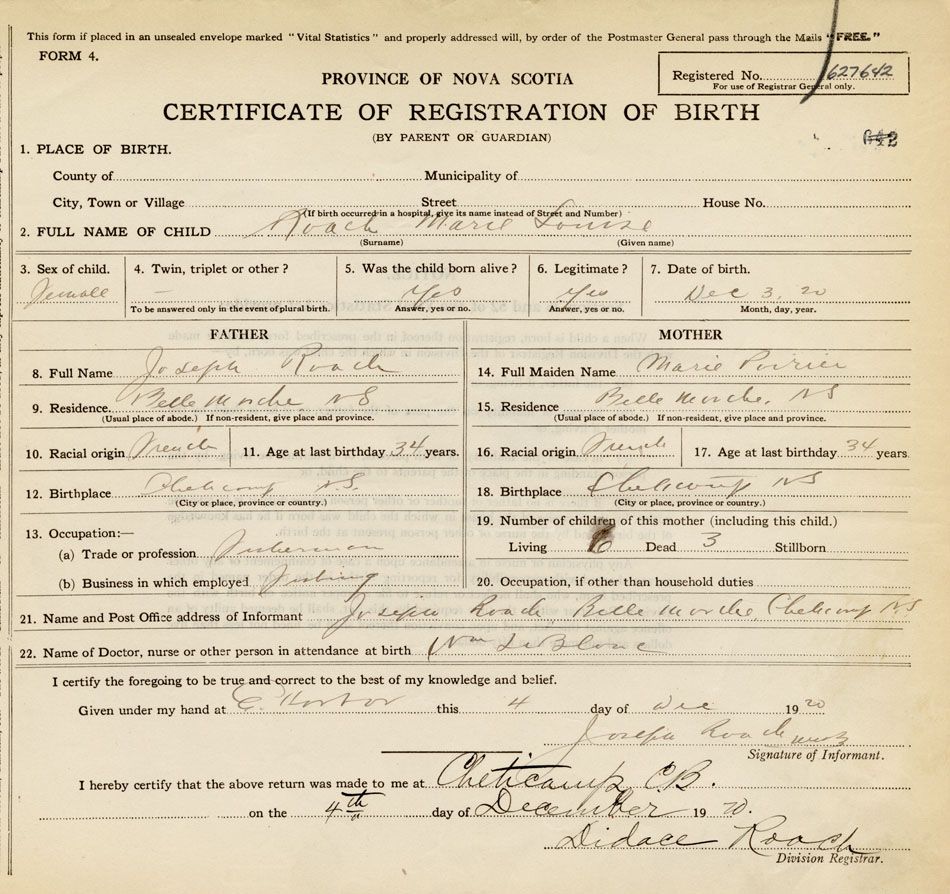 This form if placed in an unsealed envelope marked "Vital Statistics" and properly addressed will, by order of the Postmaster General pass through the Mails "FREE."
FORM 4.
Registered No. 627642
For use of Registrar General only.
PROVINCE OF NOVA SCOTIA
CERTIFICATE OF REGISTRATION OF BIRTH
(BY PARENT OR GUARDIAN)
642
1. PLACE OF BIRTH.
County of Municipality of
City, Town or Village Street House No.
(If birth occurred in a hospital, give its name instead of Street and Number)
2. FULL NAME OF CHILD Roach Marie Louise
(Surname) (Given name)
3. Sex of child. 4. Twin, triplet or other? 5. Was the child born alive? 6. Legitimate? 7. Date of birth.
Female — Yes Yes Dec 3, 20
To be answered only in the event of plural birth. Answer, yes or no. Answer, yes or no. Month, day, year.
FATHER
8. Full Name Joseph Roach
9. Residence. Belle Marche NS
(Usual place of abode.) If non-resident, give place and province.
10. Racial origin French 11. Age at last birthday 34 years.
12. Birthplace Cheticamp N.S.
(City or place, province or country.)
13. Occupation:—
(a) Trade or profession Fisherman
(b) Business in which employed Fishing
MOTHER
14. Full Maiden Name Marie Poirier
15. Residence Belle Marche, NS
(Usual place of abode.) If non-resident, give place and province.
16. Racial origin French 17. Age at last birthday 34 years.
18. Birthplace Cheticamp NS
(City or place, province or country.)
19. Number of children of this mother (including this child.)
Living 6 Dead 3 Stillborn
20. Occupation, if other than household duties
21. Name and Post Office address of Informant Joseph Roach Belle Marche Cheticamp NS
22. Name of Doctor, nurse or other person in attendance at birth Wm LeBlanc
I certify the foregoing to be true and correct to the best of my knowledge and belief.
Given under my hand at E. Harbor this 4 day of Dec 1920
Joseph Roach
Signature of Informant.
I hereby certify that the above return was made to me at Cheticamp C.B.
on the 4th day of December 1920.
Didace Roach
Division Registrar.